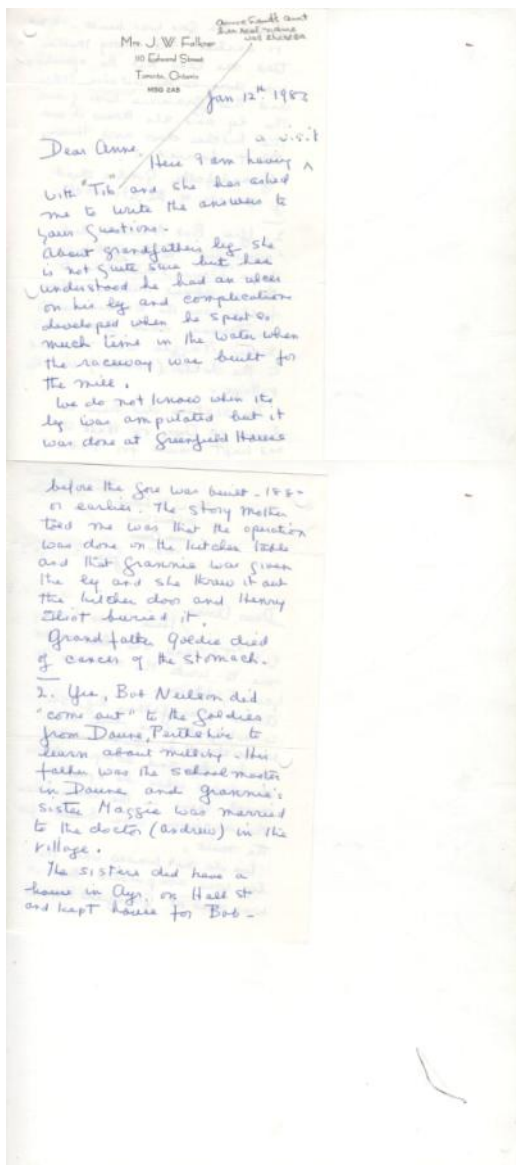 Mrs. J. W. Falkner
110 Edward Street
Toronto, Ontario
M5G 2A8
Jan 12th. 1983
Dear Anne,
a visit
Here I am having ^
with "Tib" and she has asked
me to write the answers to
your questions.
About grandfather's leg she
is not quite sure but has
understood he had an ulcer
on his leg and complications
developed when he spent so
much time in the water when
the raceway was built for
the mill.
We do not know when the
leg was amputated but it
was done at Greenfield
before the was built - 188
or earlier. The story Mother
told me was that the operation
was done on the kitchen table
and that Grannie was given
the leg and she threw it out
the kitchen door and Henry
Eliot buried it.
Grandfather Goldie died
of cancer of the stomach.
2. Yes, Bob Neilson did
"come out" to the Goldies
from Doune, Perthshire to
learn about milling. His
father was the school master
in Doune and Grannie's
sister Maggie was married
to the doctor (Andrew) in the
village.
The sisters did have a
house in Ayr, on Hall St
and kept house for Bob -